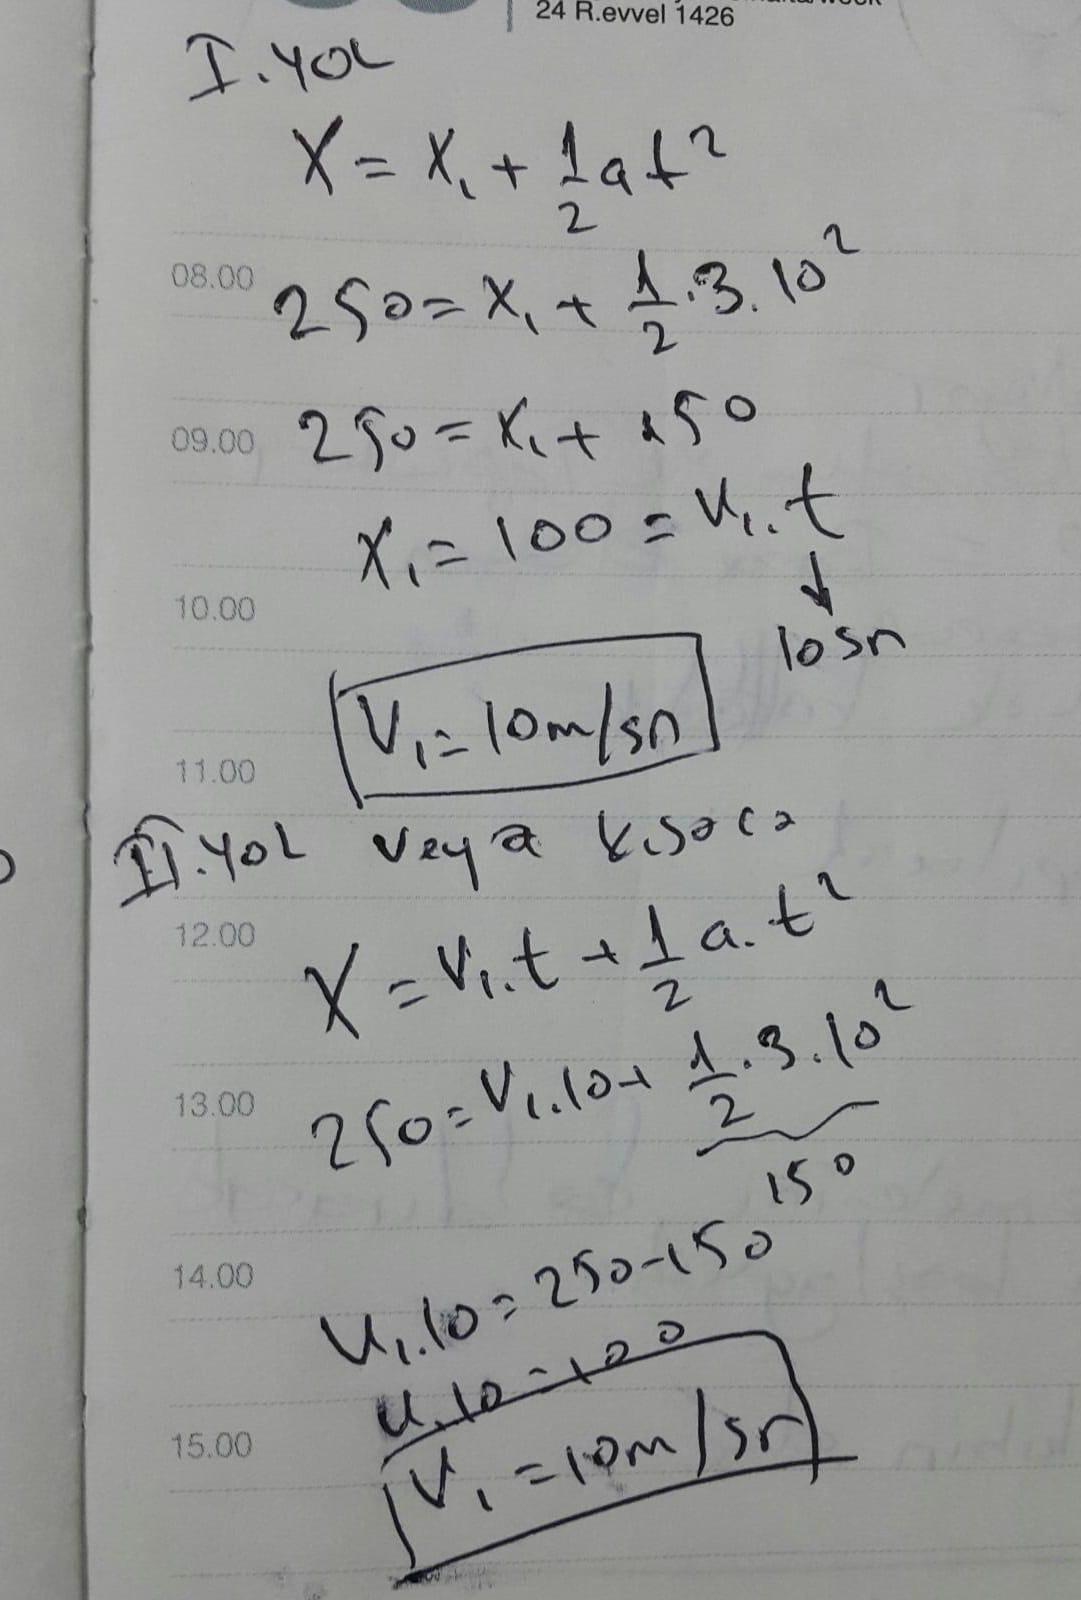 24 R.evvel 1426
I.YOL
X = X₁ + 1/2 a t²
08.00
250 = X₁ + 1/2 . 3 . 10²
09.00
250 = X₁ + 150
X₁ = 100 = V₁ . t
↓
10.00
10sn
V₁ = 10m/sn
11.00
II.YOL veya kısaca
12.00
X = V₁ . t + 1/2 a . t²
13.00
250 = V₁ . 10 + 1/2 . 3 . 10²
150
14.00
V₁ . 10 = 250 - 150
V₁ . 10 = 100
15.00
V₁ = 10m/sn